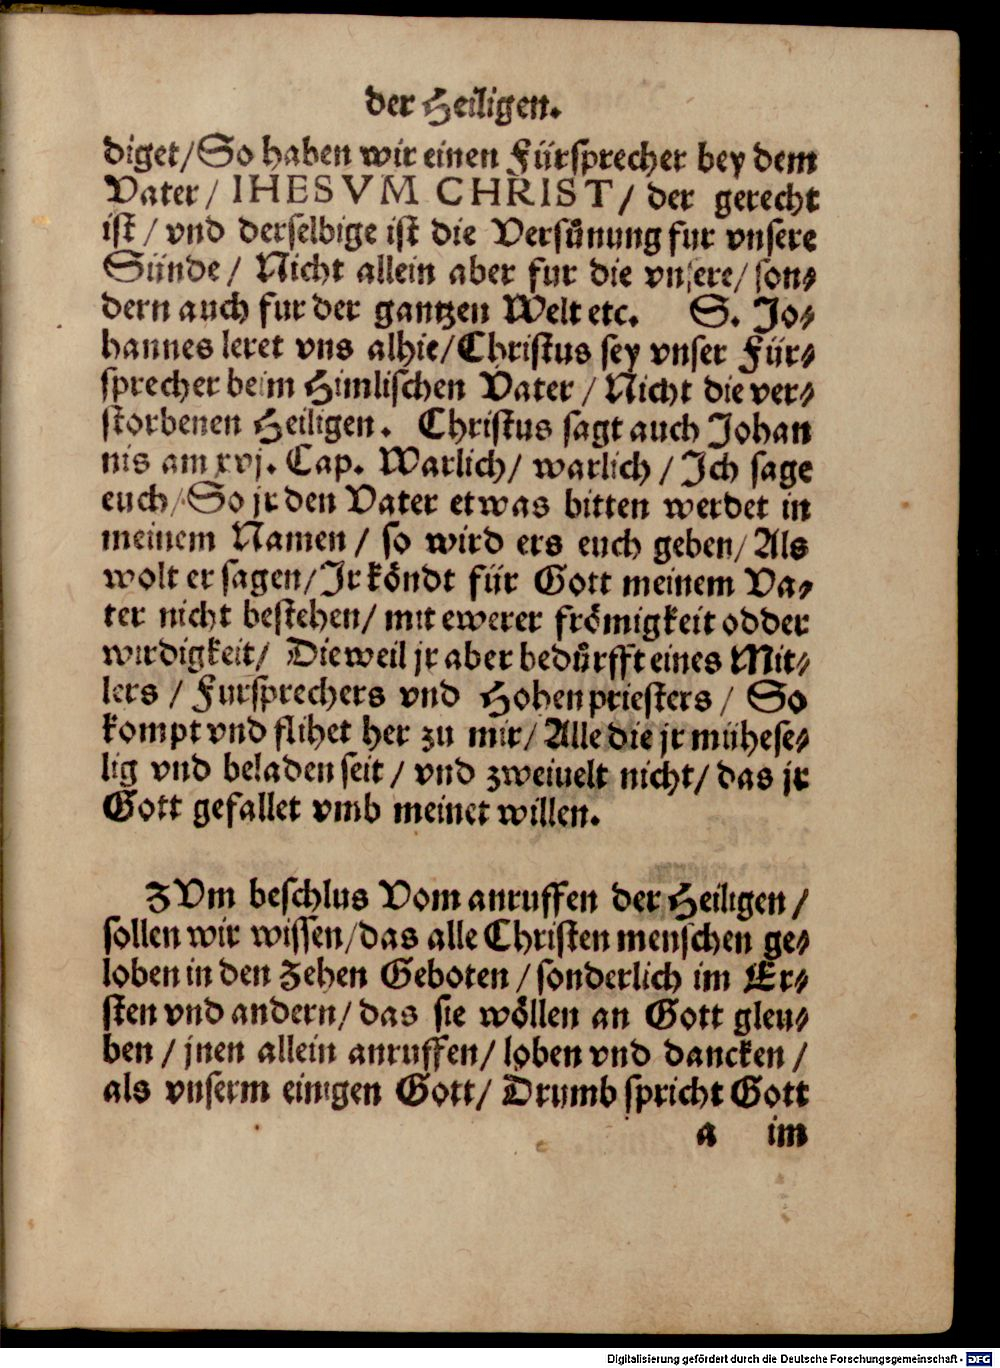 der Heiligen.
diget/So haben wir einen Fürsprecher bey dem
Vater/ IHESVM CHRIST/ der gerecht
ist/ vnd derselbige ist die Versünung fur vnsere
Sünde/ Nicht allein aber fur die vnsere/ son⸗
dern auch fur der gantzen Welt etc. S. Jo⸗
hannes leret vns alhie/Christus sey vnser Für⸗
sprecher beim Himlischen Vater/ Nicht die ver⸗
storbenen Heiligen. Christus sagt auch Johan
nis am xvj. Cap. Warlich/ warlich/ Ich sage
euch/So jr den Vater etwas bitten werdet in
meinem Namen/ so wird ers euch geben/ Als
wolt er sagen/Ir köndt für Gott meinem Va⸗
ter nicht bestehen/ mit ewerer frömigkeit odder
wirdigkeit/ Dieweil jr aber bedürfft eines Mit⸗
lers/ Fursprechers vnd Hohenpriesters/ So
kompt vnd flihet her zu mir/ Alle die jr mühese⸗
lig vnd beladen seit/ vnd zweiuelt nicht/ das jr
Gott gefallet vmb meinet willen.
ZVm beschlus Vom anruffen der Heiligen/
sollen wir wissen/das alle Christen menschen ge⸗
loben in den Zehen Geboten/ sonderlich im Er⸗
sten vnd andern/ das sie wöllen an Gott gleu⸗
ben/ jnen allein anruffen/ loben vnd dancken/
als vnserm einigen Gott/ Drumb spricht Gott
a im
Digitalisierung gefördert durch die Deutsche Forschungsgemeinschaft - DFG